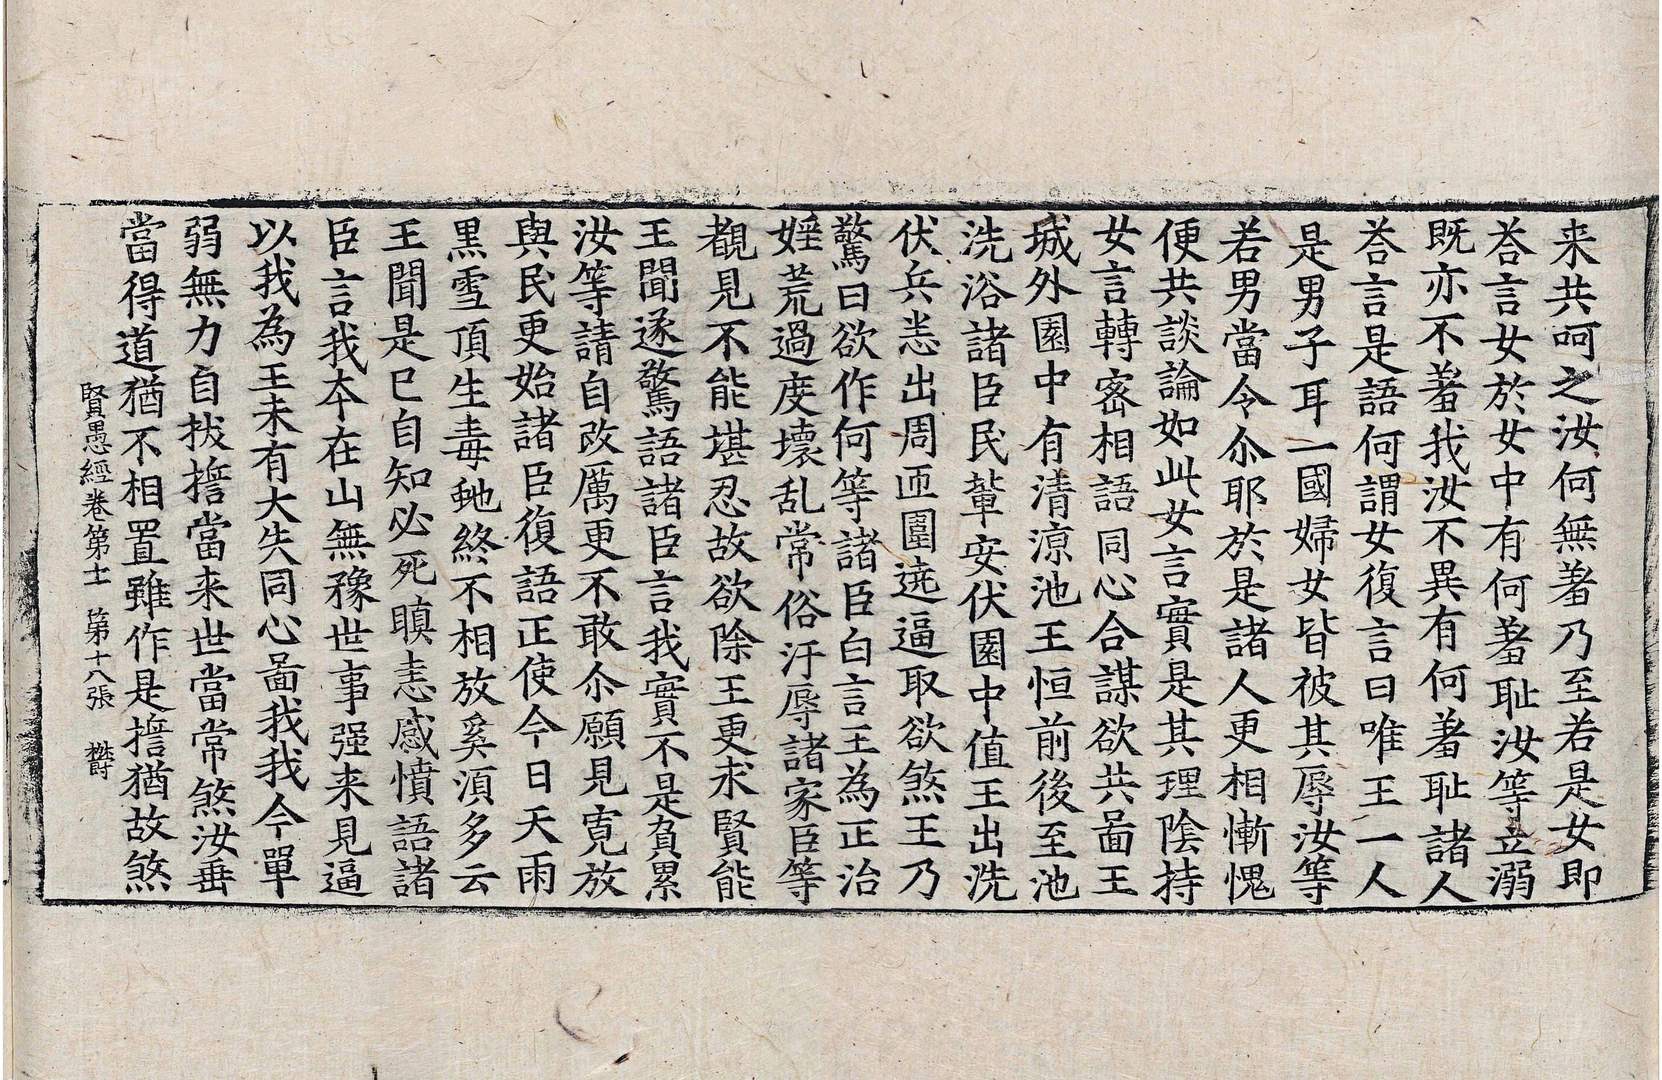 来共呵之汝何無羞乃至若是女即
荅言女於女中有何羞恥汝等立溺
既亦不羞我汝不異有何羞恥諸人
荅言是語何謂女復言曰唯王一人
是男子耳一國婦女皆被其辱汝等
若男當令尒耶於是諸人更相慚愧
便共談論如此女言實是其理陰持
女言轉宻相語同心合謀欲共啚王
城外園中有清涼池王恒前後至池
洗浴諸臣民輩安伏園中值王出洗
伏兵恙出周匝圍遶逼取欲煞王乃
驚曰欲作何等諸臣白言王為正治
婬荒過度壞乱常俗汙辱諸家臣等
覩見不能堪忍故欲除王更求賢能
王聞遂驚語諸臣言我實不是負累
汝等請自改厲更不敢尒願見寬放
與民更始諸臣復語正使今日天雨
黒雪頂生毒虵終不相放奚湏多云
王聞是已自知必死瞋恚感憤語諸
臣言我夲在山無豫世事强来見逼
以我為王未有大失同心啚我我今單
弱無力自拔擔當来世當常煞汝垂
當得道猶不相置雖作是擔猶故煞
賢愚經卷第十一　第十八張　欝